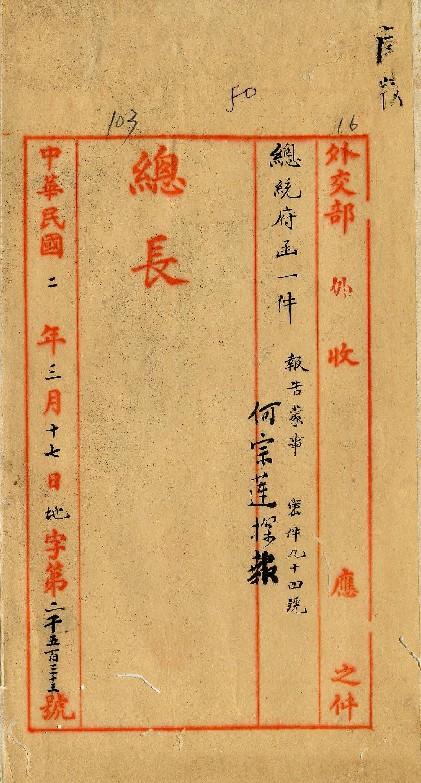 50
103
16
外交部 外 收 應 之件
總統府函一件 報告蒙事 密件九十四號
何宗蓮探報
總長
中華民國 二 年 三 月 十七 日 地 字第 二千五百三十三 號